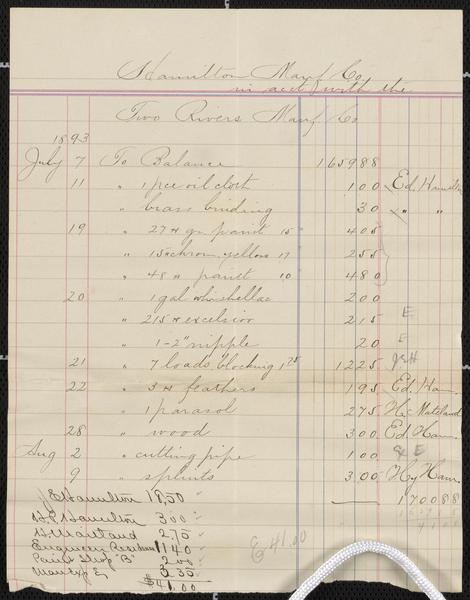 Hamilton Manf Co
in acct with the
Two Rivers Manf Co
1893
July 7 To Balance 1659 88
11 " 1 pce oil cloth 1 00 Ed. Hamilton
" brass binding 30 " "
19 " 27 # gr. paint 15 4 05
" 15 # chrom. yellow 17 2 55
" 48 # paint 10 4 80
20 " 1 gal shellac 2 00
" 215 # excelsior 2 15 E
" 1-2" nipple 20 E
21 " 7 loads blocking 1 75 12 25 J E H
22 " 3 # feathers 1 95 Ed. Ham.
" 1 parasol 2 75 H.
28 " wood 3 00 Ed. Ham.
Aug 2 " cutting pipe 1 00 E
9 " splints 3 00 Hy Ham.
1700 88
J E Hamilton 18,50 "
H. P. Hamilton 3 00 "
H. 2.75 "
11 40 "
Paint Shop "B" 2.00 "
3.35 "
$41.00
41.00